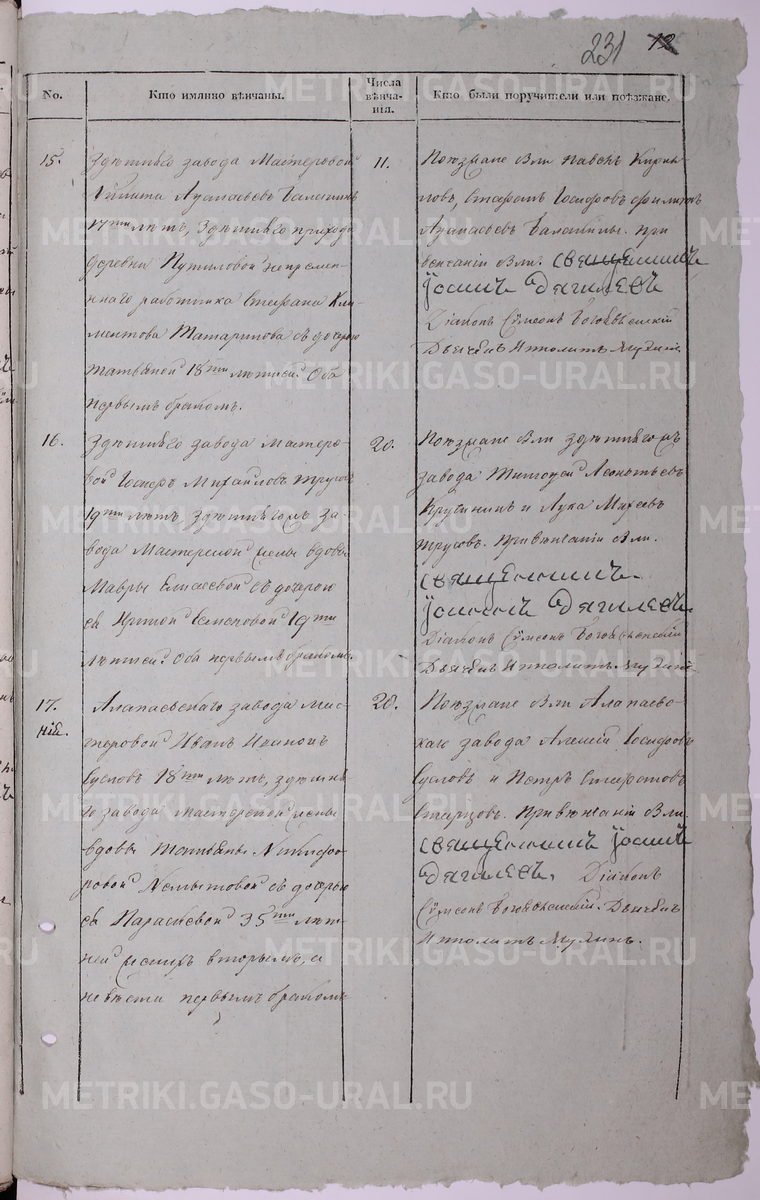 231 12
No.
Кто имянно вѣнчаны.
Числа
вѣнча-
нія.
Кто были поручители или поѣзжане.
15.
Здѣшняго завода Мастеровой
17ти лѣтъ, Здѣшняго прихода
деревни Путиловой непремен-
ннаго работника Стефана Кли-
ментова Татаринова съ дочерью
Татьяной 18ти лѣтней. Оба
первымъ бракомъ.
11.
Поѣзжане были Павелъ Кирил-
ловъ,
При
венчаніи были. священникъ
Іоаннъ Дягилевъ
Діаконъ Сѵмеонъ Богоявленскій
Дьячекъ Ипполитъ Мухинъ
16.
Здѣшняго завода Мастеро-
вой Іосифъ Михайловъ Трусовъ
19ти лѣтъ Здѣшняго за-
вода Мастерской жены вдовы
Мавры Елисеевой съ дочерью
ея Ириной 19ти
лѣтней. Оба первымъ бракомъ.
20.
Поѣзжане были здѣшняго
завода Тимофей Леонтьевъ
и Лука
Трусовъ. При венчаніи были.
священникъ
Іоаннъ Дягилевъ
Діаконъ Сѵмеонъ Богоявленскій
Дьячекъ Ипполитъ Мухинъ
17.
Алапаевскаго завода Мас-
теровой Иванъ
Сусловъ 18ти лѣтъ, здѣшня-
го завода мастерской жены
вдовы Татьяны Никифо-
ровой съ дочерью
ея Параскевой 35ти лѣт-
ней женихъ вторымъ, а
невѣста первымъ бракомъ
20.
Поѣзжане были Алапаевс-
каго завода Алексей Іосифовъ
Сусловъ и Петръ
Старцовъ. При венчаніи были.
священникъ Іоаннъ
Дягилевъ. Діаконъ
Сѵмеонъ Богоявленскій. Дьячекъ
Ипполитъ Мухинъ.
METRIKI.GASO-URAL.RU